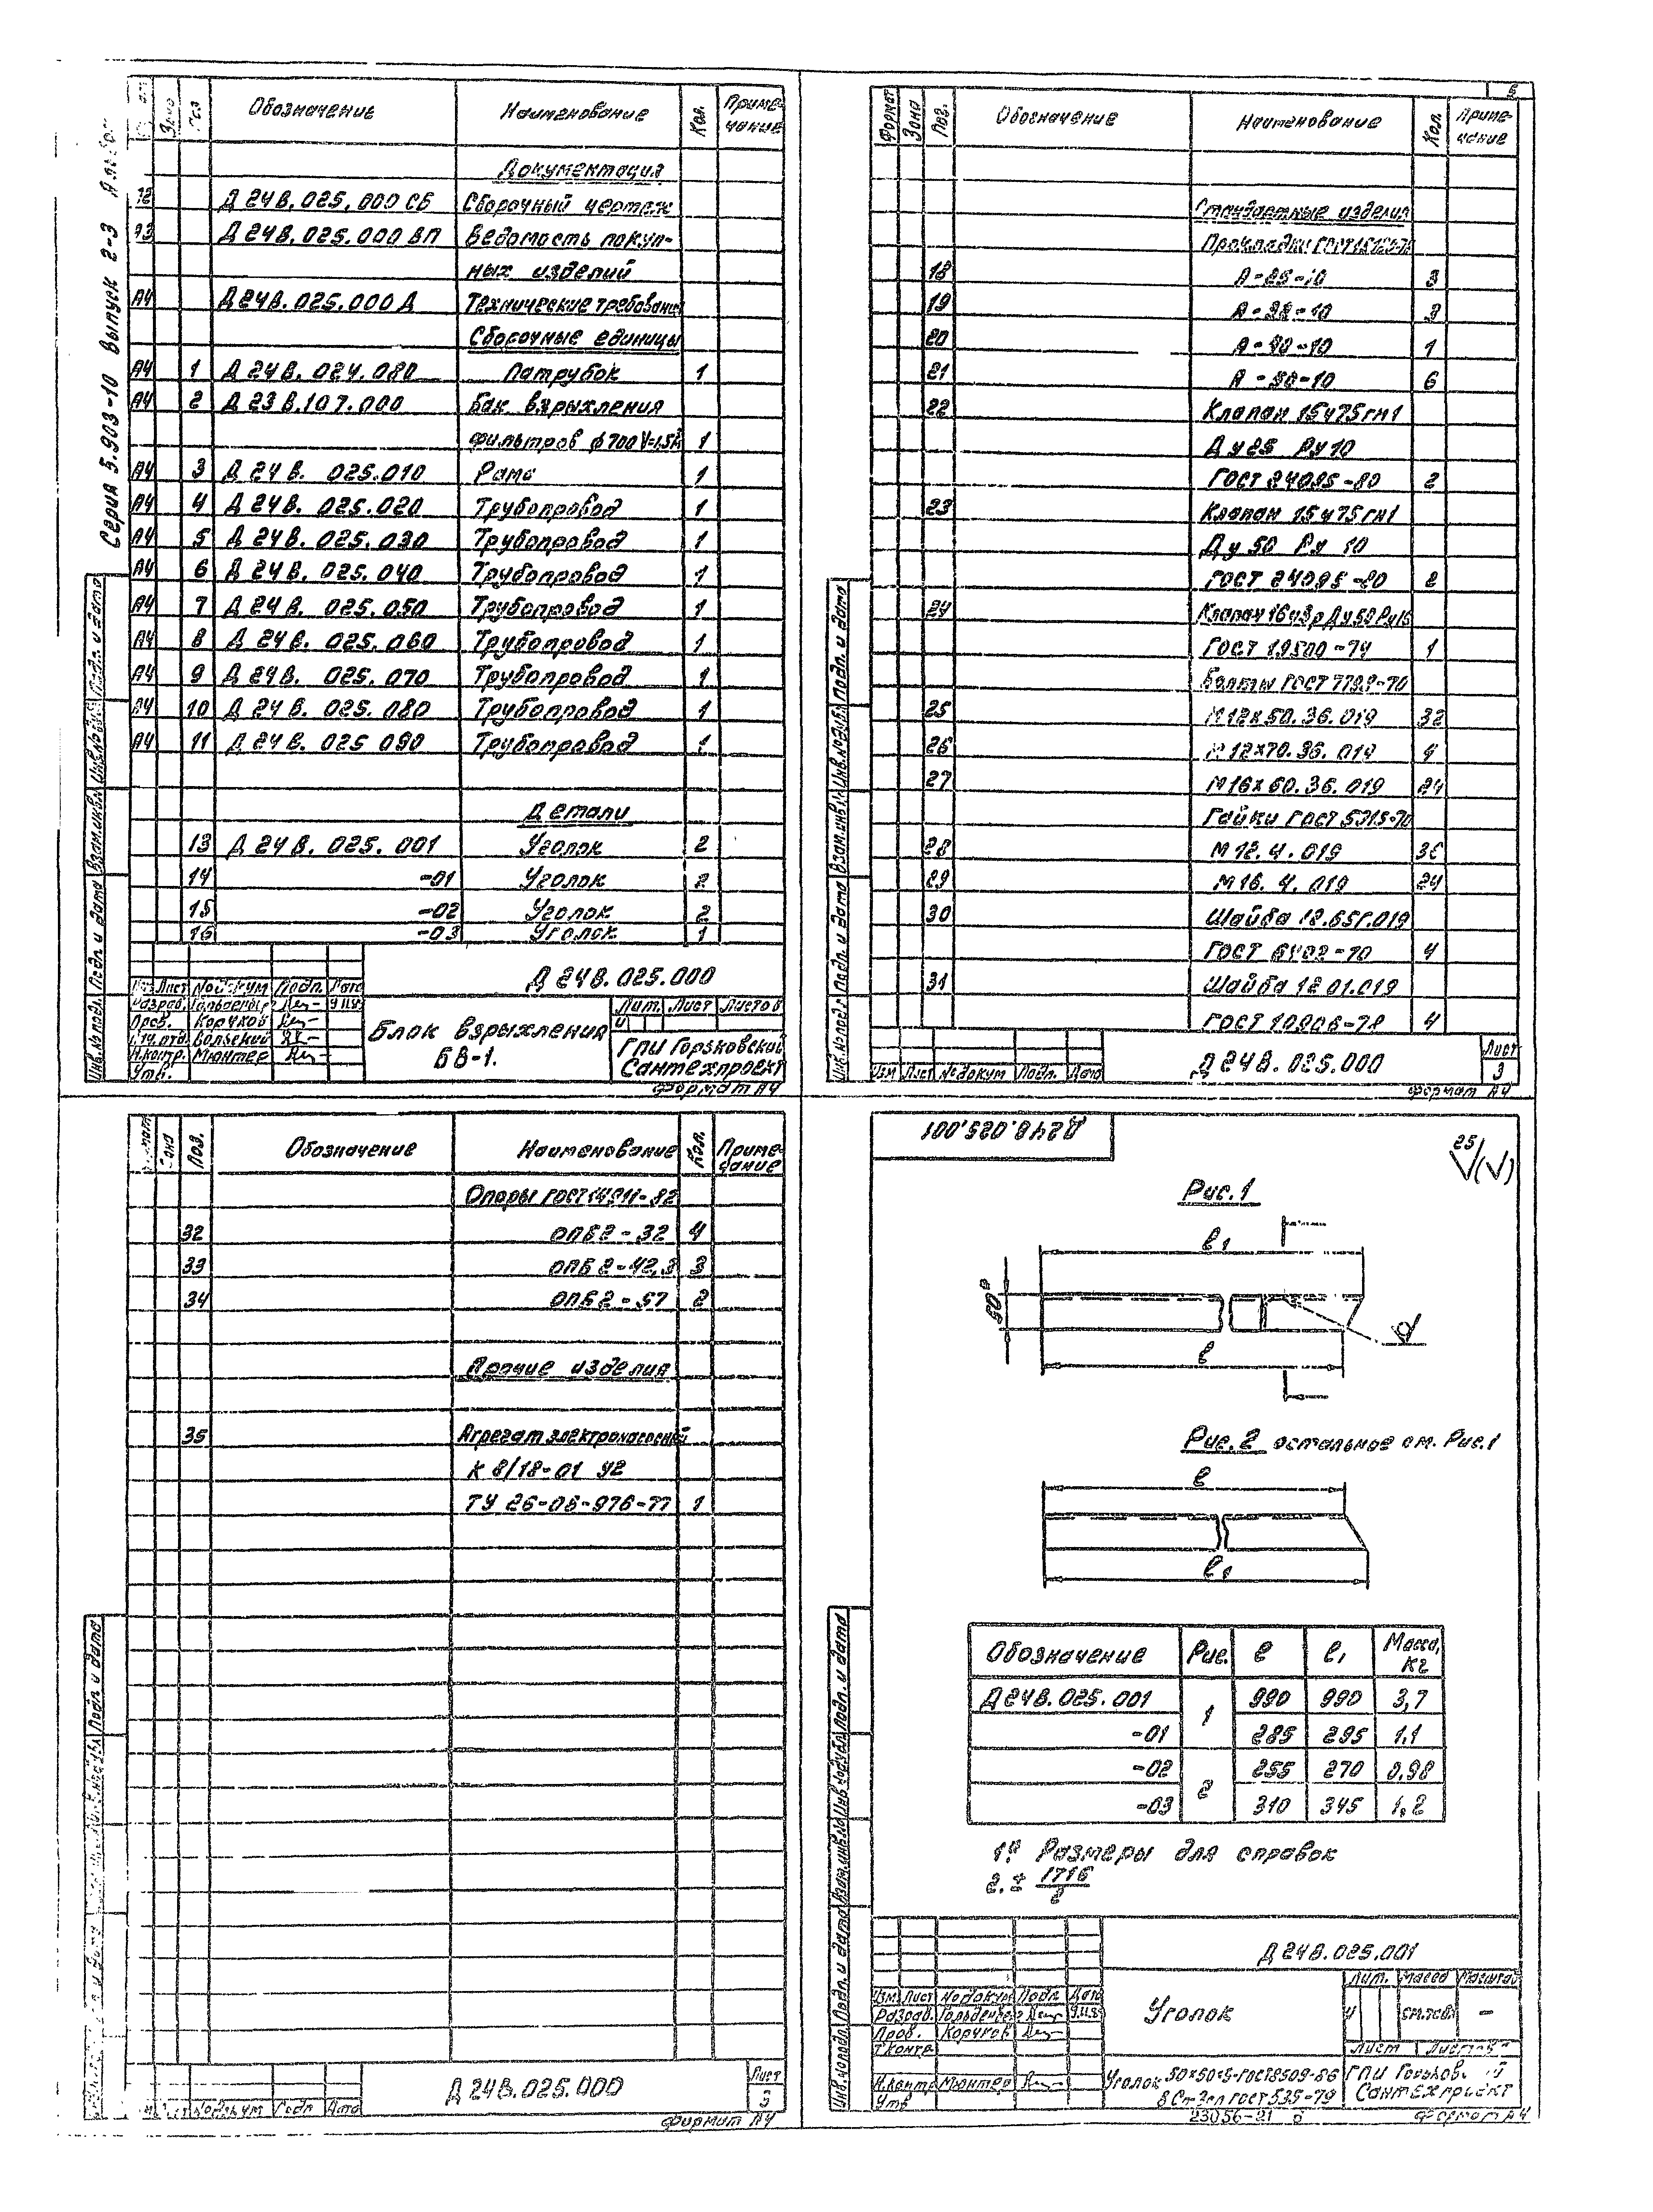 Серия 5.903-10 Выпуск 2-3
Обозначение Наименование Кол. Примечание
Документация
Д 24В.025.000 СБ Сборочный чертеж
Д 24В.025.000 ВП Ведомость покуп-
ных изделий
А4 Д 24В.025.000 Д Технические требования
Сборочные единицы
А4 1 Д 24В.024.080 Патрубок 1
А4 2 Д 23В.107.000 Бак взрыхления
фильтров ϕ700 V=1,5м³ 1
А4 3 Д 24В. 025.010 Рама 1
А4 4 Д 24В. 025.020 Трубопровод 1
А4 5 Д 24В. 025.030 Трубопровод 1
А4 6 Д 24В. 025.040 Трубопровод 1
А4 7 Д 24В. 025.050 Трубопровод 1
А4 8 Д 24В. 025.060 Трубопровод 1
А4 9 Д 24В. 025.070 Трубопровод 1
А4 10 Д 24В. 025.080 Трубопровод 1
А4 11 Д 24В. 025 090 Трубопровод 1
Детали
13 Д 24В. 025.001 Уголок 2
14 -01 Уголок 2
15 -02 Уголок 2
16 -03 Уголок 1
Д 24В.025.000
Изм Лист №докум Подп. Дата
Разраб.
Пров. Коруков
Н.контр. Мюнтер
Утв.
Блок взрыхления
БВ-1.
Лит. Лист Листов
И
ГПИ Горьковский
Сантехпроект
Формат А4
Инв.№подл. Подп. и дата Взам.инв.№ Инв.№дубл. Подп. и дата
Формат Зона Поз. Обозначение Наименование Кол. Примечание
Стандартные изделия
Прокладки ГОСТ
18 А-25-10 3
19 10 3
20 10 1
21 А-50-10 6
22 Клапан 15ч75гм1
Ду25 Ру10
ГОСТ 24095-80 2
23 Клапан 15ч75гм1
Ду 50 Ру 10
ГОСТ 24095-80 2
24 Клапан 16ч3р Ду 50 Ру16
ГОСТ 19500-74 1
Болты ГОСТ 7798-70
25 М12х50.36.019 32
26 М12х70.36.019 4
27 М16х60.36.019 24
Гайки ГОСТ 5915-70
28 М12.4.019 36
29 М16.4.019 24
30 Шайба 12.65Г.019
ГОСТ 6402-70 4
31 Шайба 12 01.019
ГОСТ 10906-78 4
Изм Лист №докум Подп. Дата
Д 24В.025.000
Лист
3
Формат А4
Инв.№подл. Подп. и дата Взам.инв.№ Инв.№дубл. Подп. и дата
Поз. Обозначение Наименование Кол. Примечание
Опоры ГОСТ 14911-82
32 ОПБ2-32 4
33 ОПБ2-42,3 3
34 ОПБ2-57 2
Прочие изделия
35 Агрегат электронасосный
К 8/18-01 У2
ТУ 26-06-976-77 1
Д 24В.025.000
Лист
3
Формат А4
Д 24В.025.001
25
Рис.1
ℓ₁
50*
ℓ
Рис.2 остальное см. Рис.1
ℓ
ℓ₁
Обозначение Рис. ℓ ℓ₁ Масса, кг
Д 24В.025.001 1 990 990 3,7
-01 285 295 1,1
-02 2 255 270 0,98
-03 310 345 1,2
1.* Размеры для справок
2. ± IT16/2
Д 24В.025.001
Изм. Лист №докум Подп. Дата
Разраб.
Пров. Коруков
Т.контр.
Н.контр. Мюнтер
Утв
Уголок
Лит. Масса Масштаб
И см.табл –
Лист Листов
Уголок 50х50х5-ГОСТ8509-86
ВСт3сп ГОСТ 535-79
ГПИ Горьковский
Сантехпроект
23056-21 6
Формат А4
Инв.№подл. Подп. и дата Взам.инв.№ Инв.№дубл. Подп. и дата